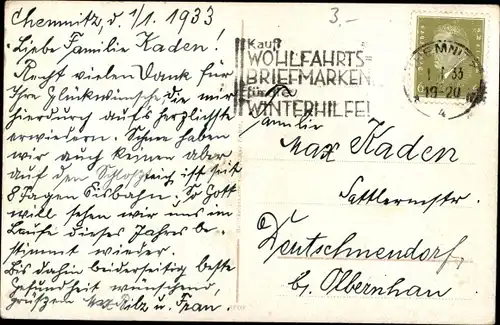 Chemnitz, d. 1/1. 1933
Liebe Familie Kaden!
Recht vielen Dank für
Ihre Glückwünsche, die wir
hierdurch aufs herzlichste
erwiedern. Schnee haben
wir auch keinen aber
auf dem Schloßteich ist seit
8 Tagen Eisbahn. So Gott
will sehen wir uns im
Laufe dieses Jahres be-
stimmt wieder.
Bis dahin beiderseitig beste
Gesundheit wünschend,
grüßen Max u. Frau.
3,-
Kauft
WOHLFAHRTS=
BRIEFMARKEN
für die
WINTERHILFE!
CHEMNITZ
1.1.33
19-20
4
Familie
Max Kaden
Sattlermstr.
Deutschneudorf,
b/ Olbernhau